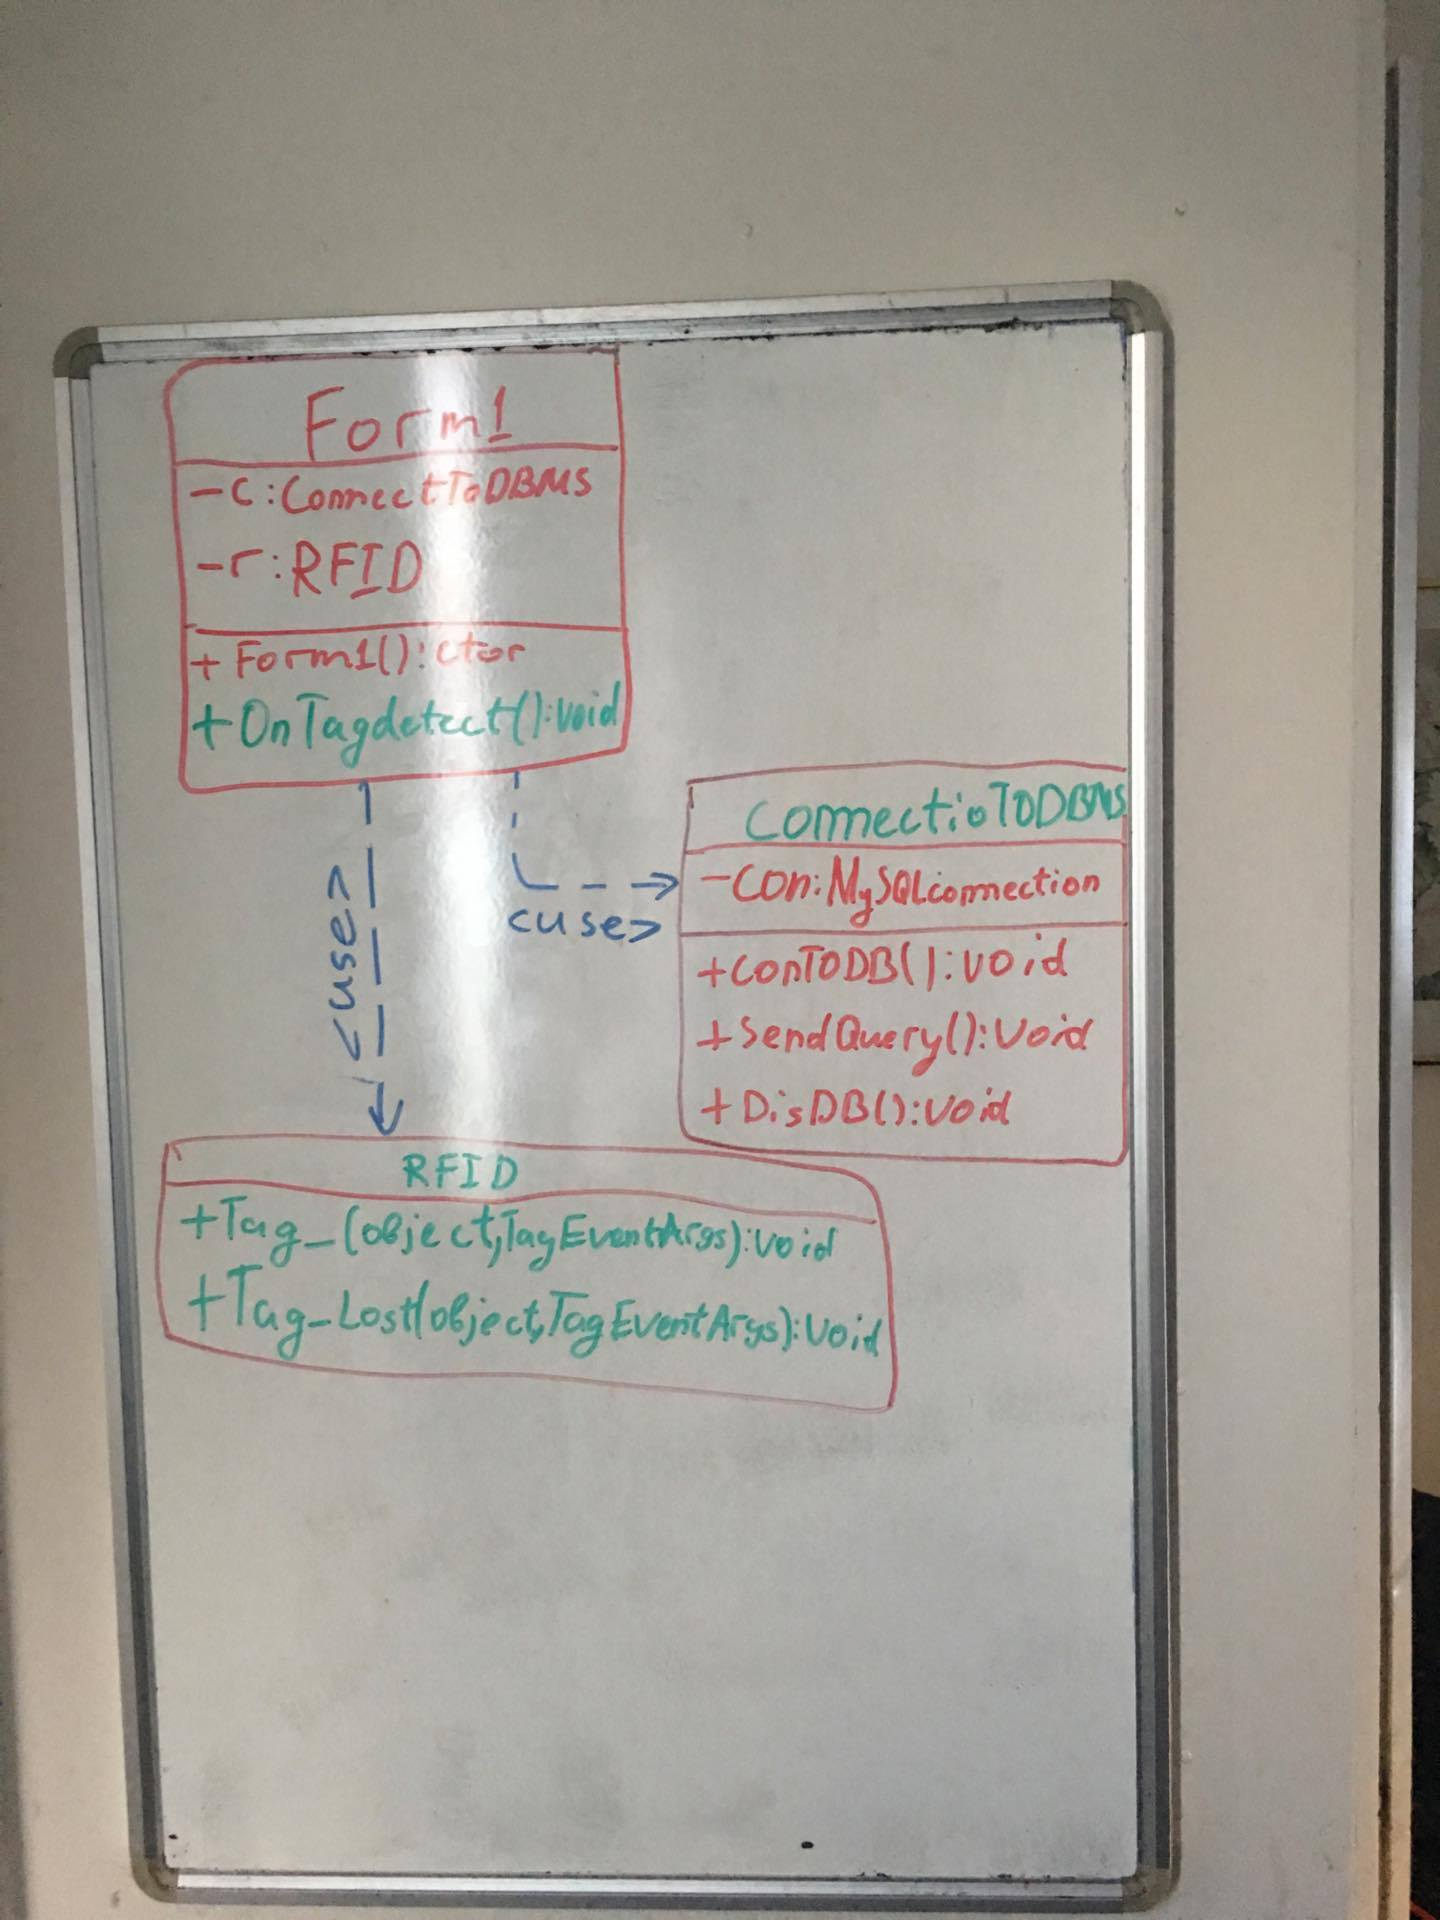 Form1
-C:ConnectToDBMS
-r:RFID
+Form1():ctor
+OnTagdetect():void
<use>
<use>
ConnectioToDBMS
-Con:MySQLconnection
+ConTODB():void
+SendQuery():void
+DisDB():void
RFID
+Tag_(object,TagEventArgs):void
+Tag_Lost(object,TagEventArgs):void